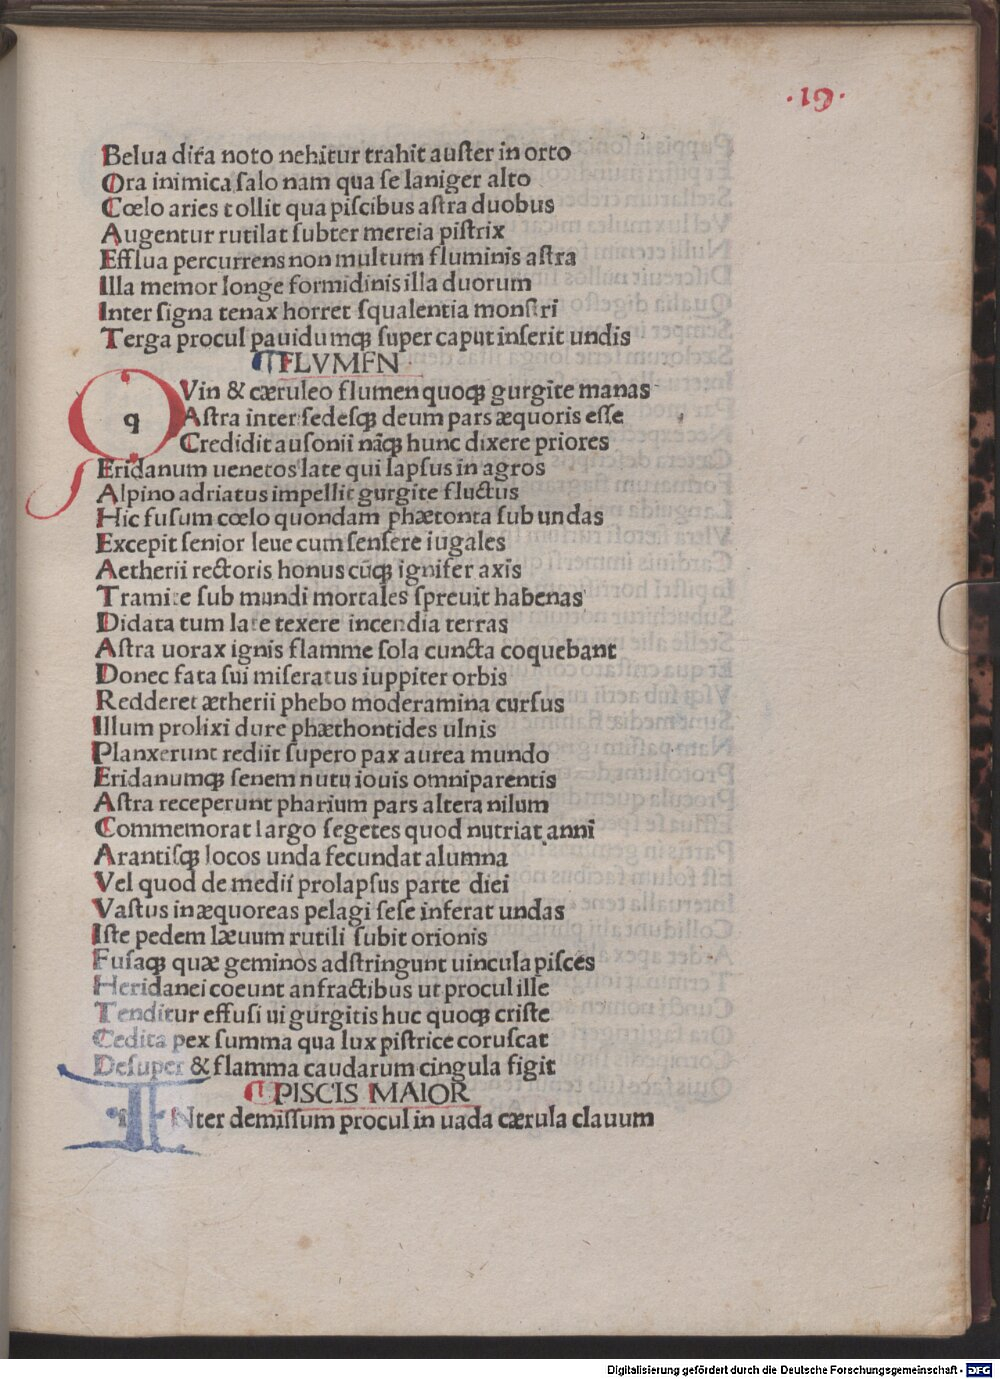 ·19·
Belua dira noto nehitur trahit auster in orto
Ora inimica salo nam qua se laniger alto
Cœlo aries tollit qua piscibus astra duobus
Augentur rutilat subter mereia pistrix
Efflua percurrens non multum fluminis astra
Illa memor longe formidinis illa duorum
Inter signa tenax horret squalentia monstri
Terga procul pauidumqꝫ super caput inserit undis
¶FLVMEN
QVin & cæruleo flumen quoqꝫ gurgite manas
Astra inter sedesqꝫ deum pars æquoris esse
Credidit ausonii nāqꝫ hunc dixere priores
Eridanum uenetos late qui lapsus in agros
Alpino adriatus impellit gurgite fluctus
Hic fusum cœlo quondam phætonta sub undas
Excepit senior leue cum sensere iugales
Aetherii rectoris honus cūqꝫ ignifer axis
Tramite sub mundi mortales spreuit habenas
Didata tum late texere incendia terras
Astra uorax ignis flamme sola cuncta coquebant
Donec fata sui miseratus iuppiter orbis
Redderet ætherii phebo moderamina cursus
Illum prolixi dure phæthontides ulnis
Planxerunt rediit supero pax aurea mundo
Eridanumqꝫ senem nutu iouis omniparentis
Astra receperunt pharium pars altera nilum
Commemorat largo segetes quod nutriat anni
Arantisqꝫ locos unda fecundat alumna
Vel quod de medii prolapsus parte diei
Vastus in æquoreas pelagi sese inferat undas
Iste pedem læuum rutili subit orionis
Fusaqꝫ quæ geminos adstringunt uincula pisces
Heridanei coeunt anfractibus ut procul ille
Tenditur effusi ui gurgitis huc quoqꝫ criste
Cedita pex summa qua lux pistrice coruscat
Desuper & flamma caudarum cingula figit
¶PISCIS MAIOR
INter demissum procul in uada cærula clauum
Digitalisierung gefördert durch die Deutsche Forschungsgemeinschaft - DFG